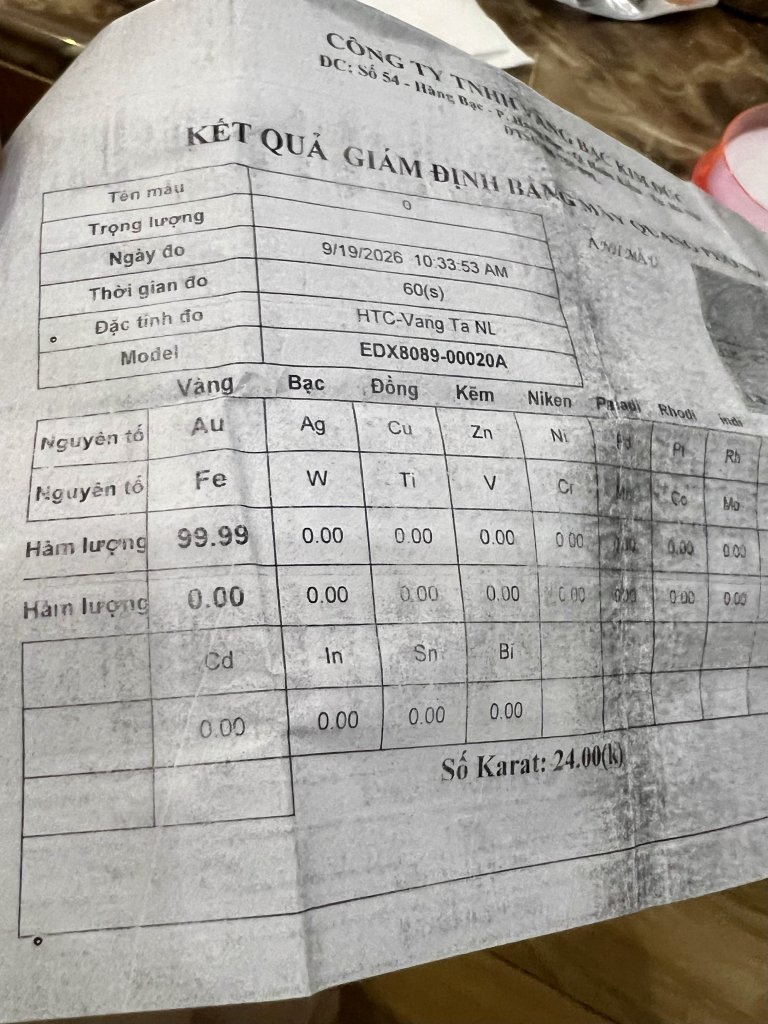 CÔNG TY TNHH VÀNG BẠC KIM ĐỨC
ĐC: Số 54 - Hàng Bạc - P.
KẾT QUẢ GIÁM ĐỊNH BẰNG MÁY QUANG
ẢNH MẪU
Tên mẫu
Trọng lượng 0
Ngày đo 9/19/2026 10:33:53 AM
Thời gian đo 60(s)
Đặc tính đo HTC-Vang Ta NL
Model EDX8089-00020A
Vàng Bạc Đồng Kẽm Niken Paladi Rhodi Indi
Nguyên tố Au Ag Cu Zn Ni Pd Pt Rh
Nguyên tố Fe W Ti V Cr Mn Co Mo
Hàm lượng 99.99 0.00 0.00 0.00 0.00 0.00 0.00 0.00
Hàm lượng 0.00 0.00 0.00 0.00 0.00 0.00 0.00 0.00
Cd In Sn Bi
0.00 0.00 0.00 0.00
Số Karat: 24.00(k)